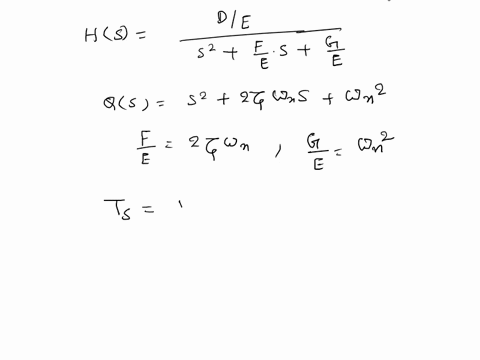 H(S) = D/E / S² + F/E · S + G/E
Q(S) = S² + 2ζ ωn S + ωn²
F/E = 2ζ ωn , G/E = ωn²
Ts =